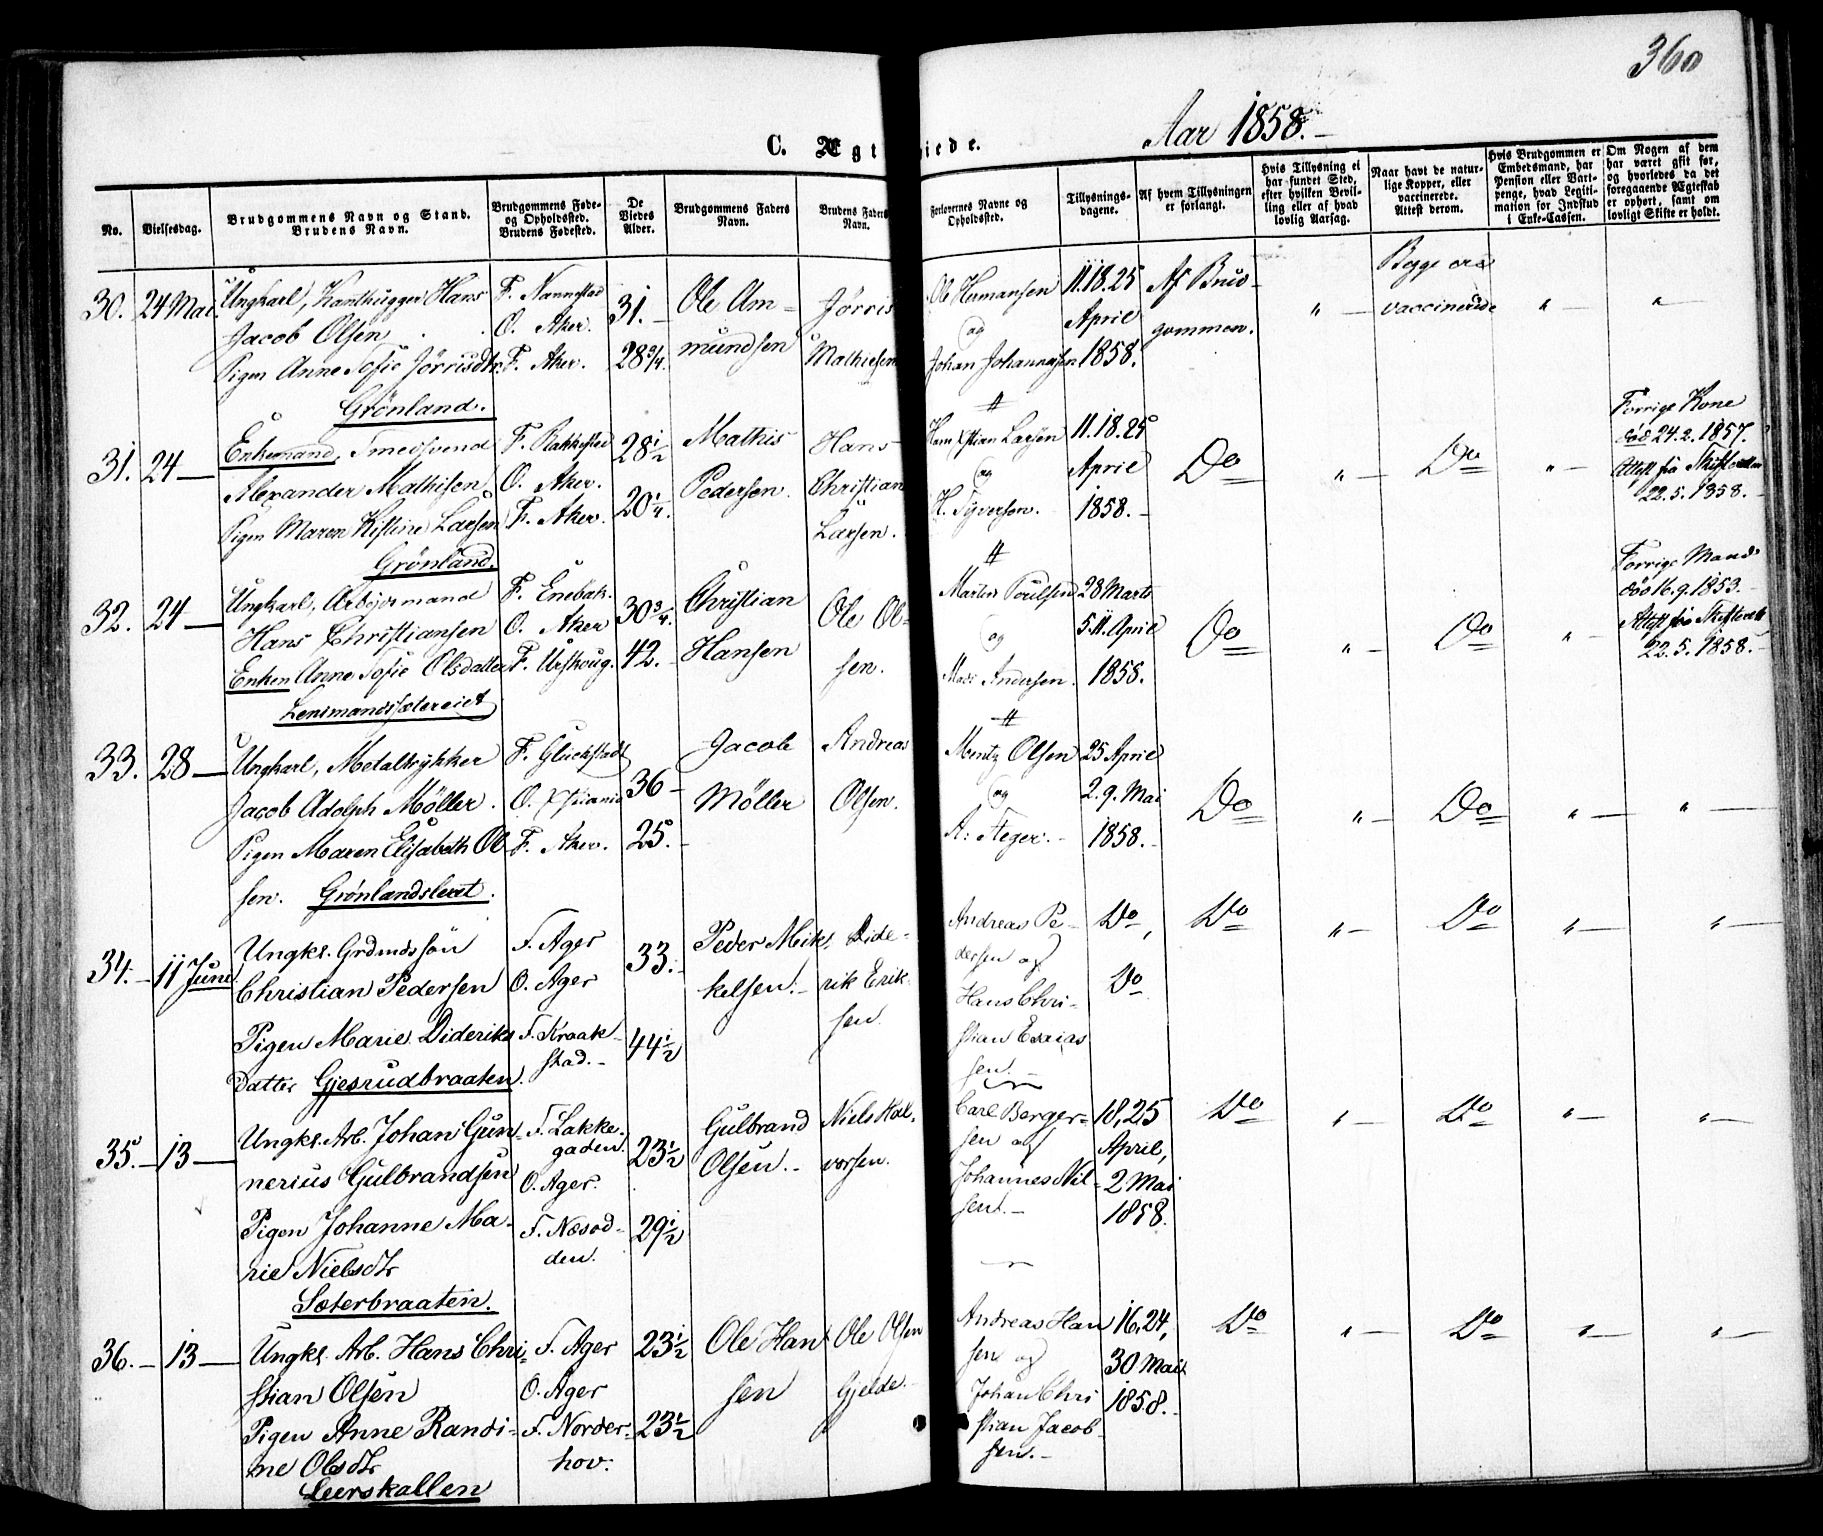 360
Aar 1858.
C. Ægteviede.
No.
Vielsesdag.
Brudgommens Navn og Stand.
Brudens Navn.
Brudgommens Føde-
og Opholdssted.
Brudens Fødested.
De
Viedes
Alder.
Brudgommens Faders
Navn.
Brudens Faders
Navn.
Forlovernes Navne og
Opholdssted.
Tillysnings-
dagene.
Af hvem Tillysningen
er forlangt.
Hvis Tillysning ei
har fundet Sted,
efter hvilken Bevil-
ling eller af hvad
lovlig Aarsag.
Naar havt de natur-
lige Kopper, eller
vaccinerede.
Attest derom.
Hvis Brudgommen er
Embedsmand, har
Pension eller Vart-
penge, hvad Legiti-
mation for Indskud
i Enke-Cassen.
Om Nogen af dem
har været gift før,
og hvorledes da det
foregaaende Ægteskab
er ophørt, samt om
lovligt Skifte er holdt.
30. 24 Mai
Ungkarl, Kanthugger Hans
Jacob Olsen
Pigen Anne Sofie Jørrisdtr.
Grønland.
F. Nannestad
O. Aker.
F. Aker.
31.
28 3/4.
Ole Am-
mundsen
Jørris
Mathiesen
Ole Hermansen
og
Johan Johannesen
11.18.25
April
1858.
Af Brud-
gommen.
" —
Begge ere
vaccinerede
" —
" —
31. 24 —
Enkemand, Smedsvend
Alexander Mathisen
Pigen Maren Kistine Larsen
Grønland.
F. Rakkestad
O. Aker.
F. Aker.
28 1/2
20 1/4.
Mathis
Pedersen.
Hans
Christian
Larsen.
Hans Xstian Larsen
og
H. Syversen.
11.18.25
April
1858. —
Do
" —
Do
" —
Forrige Kone
død 24.2.1857.
Attest fra Skifteretten
22.5.1858. —
32. 24 —
Ungkarl, Arbejdsmand
Hans Christiansen
Enken Anne Sofie Olsdatter
Lensmandssætereiet
F. Enebak.
O. Aker
F. Urskoug.
30 3/4.
42.
Christian
Hansen
Ole Ol-
sen.
Martin Poulsen
og
Mads Andersen.
28 Marts
5.11. April
1858.
Do
" —
Do
" —
Forrige Mand
død 16.9.1853. —
Attest fra Skifterett
22.5.1858. —
33. 28 —
Ungkarl, Metaltrykker
Jacob Adolph Møller.
Pigen Maren Elisabeth Ol-
sen. Grønlandsleret.
F. Gluckstadt
O. Xstiania
F. Aker.
36 —
25.
Jacob
Møller
Andreas
Olsen.
Mentz Olsen
og
A: Æger. —
25 April
2.9. Mai
1858. —
Do
" —
Do
" —
" —
34. — 11 Juni
Ungk. Grdmdssøn
Christian Pedersen
Pigen Marie Dideriks
Datter Gjesrudbraaten.
F. Ager
O. Ager
F. Kraak-
stad. —
33. —
44 1/2
Peder Mik-
kelsen. —
Dide-
rik Erik-
sen.
Andreas Pe-
dersen og
Hans Chri-
stian Esaias
sen. —
Do,
Do
Do
" —
Do
" —
" —
35. — 13 —
Ungk. Arb. Johan Gun-
nerius Gulbrandsen
Pigen Johanne Ma-
rie Nielsdtr
Sæterbraaten.
F. Lakke-
gaden.
O. Ager.
F. Næsod-
den.
23 1/2
29 1/2
Gulbrand
Olsen. —
Niels Hal-
vorsen.
Carl Berger-
sen og
Johannes Nil-
sen. —
18,25
April,
2 Mai
1858.
Do
" —
Do
" —
" —
36. — 13 —
Ungk. Arb. Hans Chri-
stian Olsen
Pigen Anne Randi-
ne Olsdtr
Leerskallen
F. Ager
O. Ager
F. Norder-
hov.
23 1/2
23 1/2
Ole Han
sen
Ole Olsen
Gjelde. —
Andreas Han
sen og
Johan Chri
stian Jacob
sen. —
16,24,
30 Mai
1858. —
Do
" —
Do
" —
" —